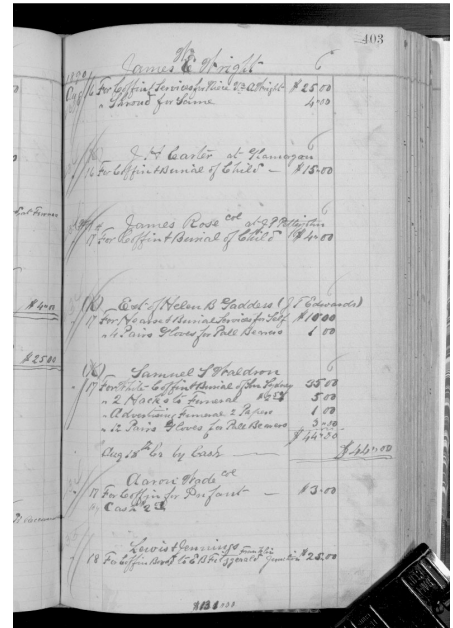 403
James E Wright
1890
Aug 16 For Coffin & Services for Niece Wright $25.00
" Shroud for Same 4.00
J H Carter at Flannagan
16 For Coffin & Burial of Child — $15.00
James Rose col at J P Pettyjohn
17 For Coffin & Burial of Child $4.00
Est of Helen B Gaddess (J T Edwards)
17 For Hearse & Burial Services for Self $10.00
" 4 Pairs Gloves for Pall Bearers 1 00
$4.00
$25.00
Samuel S Waldron
17 For White Coffin & Burial of Son Sydney 35 00
" 2 Hacks to Funeral 5 00
" Advertising Funeral 2 Papers 1 00
" 12 Pairs Gloves for Pall Bearers 3.00
$44.00
Aug 18th Cr by Cash $44.00
Aaron Wade col
17 For Coffin for Infant — $3.00
Cash
Lewis & Jennings Franklin
18 For Coffin Box & to E B Fitzgerald Junction $25.00
$131.00